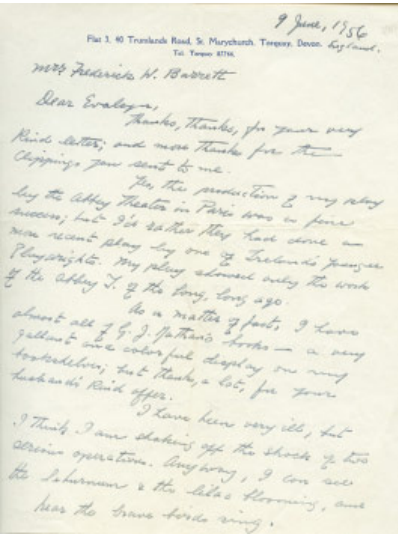 9 June, 1956
Flat 3, 40 Trumlands Road, St. Marychurch, Torquay, Devon. England.
Tel. Torquay 87766.
Mrs Frederick W. Barrett
Dear Evalyn,
Thanks, thanks, for your very
kind letter; and more thanks for the
clippings you sent to me.
Yes, the production of my play
by the Abbey Theater in Paris was a fine
success; but I'd rather they had done a
more recent play by one of Ireland's younger
Playwrights. My play showed only the work
of the Abbey T. of the long, long ago.
As a matter of fact, I have
almost all of G. J. Nathan's books — a very
gallant and colorful display on my
bookshelves; but thanks, a lot, for your
husband's kind offer.
I have been very ill, but
I think I am shaking off the shock of two
serious operations. Anyway, I can see
the laburnum & the lilac blooming, and
hear the brave birds sing.